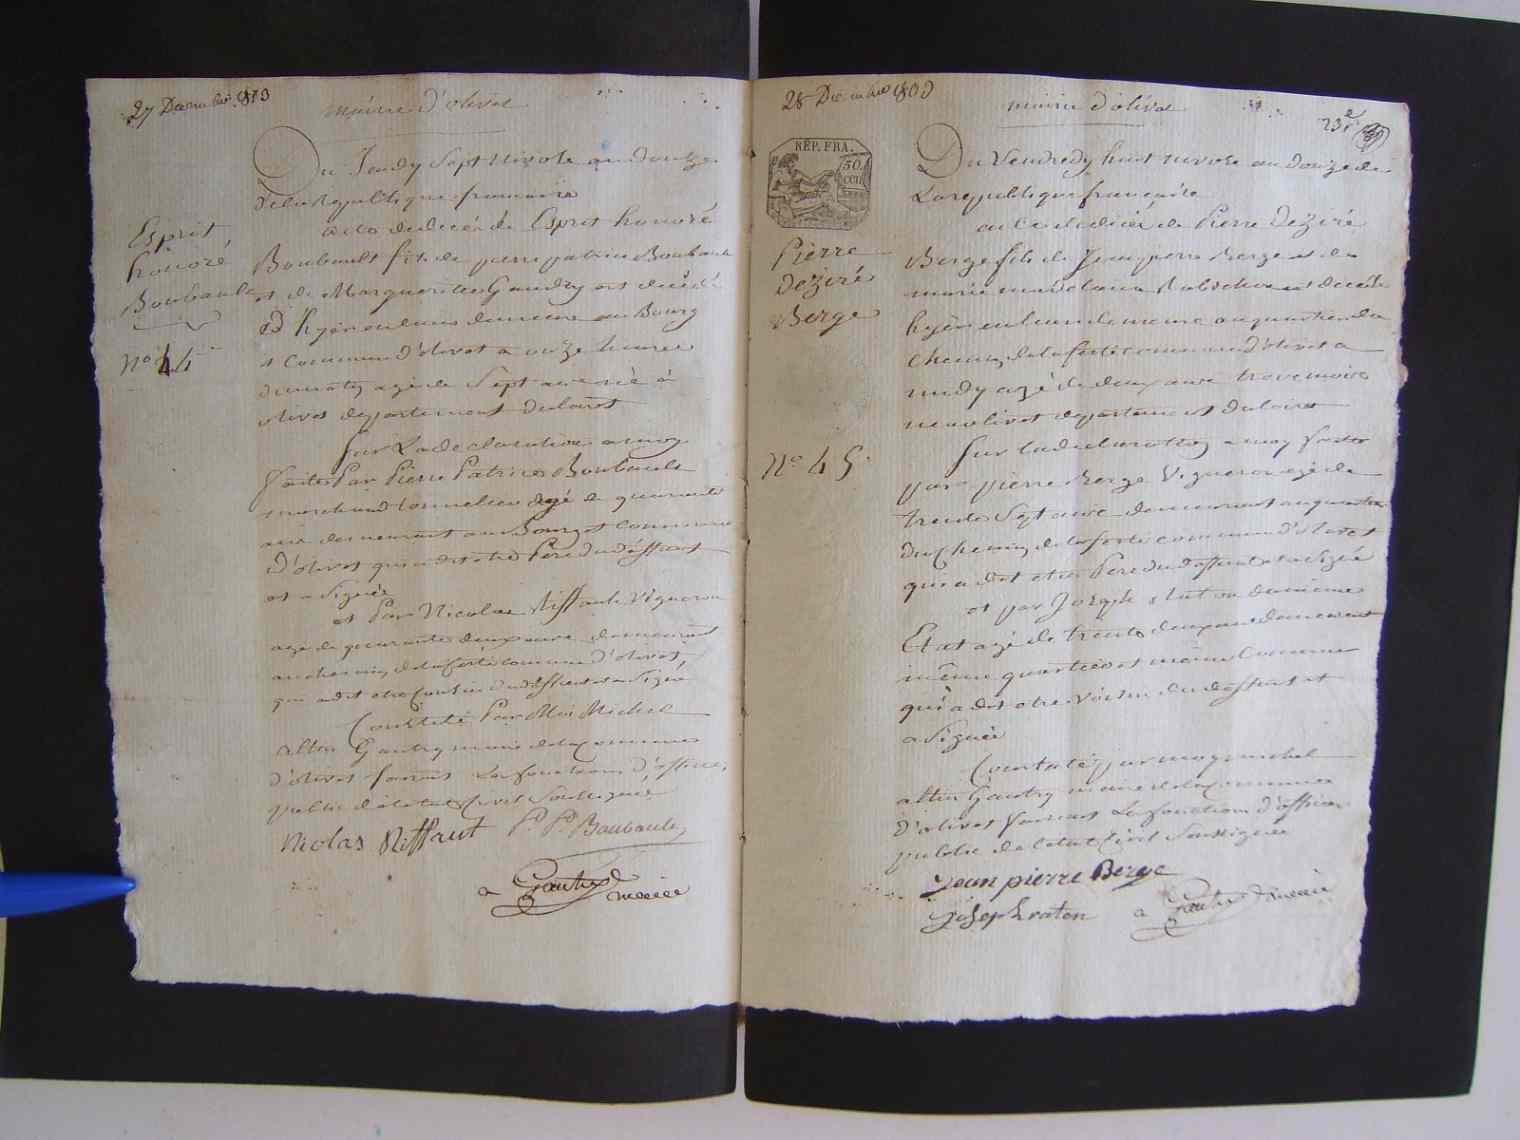 27 Decembre 1803
mairie d'olivet
Du Jeudy Sept nivose an douze
de la Republique francaise
acte de decés de Esprit honoré
Boubault fils de pierre patrice Boubault
et de Marguerite Gaudry est decédé
d'hyer en leur demeure au Bourg
et Commune d'olivet a onze heures
du matin agé de Sept ans né à
olivet departement du loiret
Sur La declaration a moy
faite Par Pierre Patrice Boubault
marchand tonnelier agé de quarante
ans demeurant au Bourg et Commune
D'olivet qui a dit etre Pere du deffunt
et a Signée
et Par Nicolas Riffault Vigneron
agé de quarante deux ans demeurant
au chemin de la ferté Commune d'olivet
qui a dit etre Cousin du deffunt et a Signé
Constaté Par Moi Michel
altin Gautry maire de la Commune
d'olivet faisant Les fonctions d'officier
public de l'etat Civil Soussigné
Nicolas Riffaut P. P. Boubault
a Gautry
maire
Esprit
honoré
Boubault
No 44
28 Decembre 1803
mairie d'olivet
23e
REP. FRA.
50
cen
Du Vendredy huit nivose an douze de
La republique française
acte de decés de Pierre Deziré
Berge fils de Jean pierre Berge et de
marie magdelaine est decédé
hyer en leur demeure au quartier du
chemin de la ferté commune d'olivet a
midy agé de deux ans trois mois
né a olivet departement du loiret
Sur la declaration a moy faite
par pierre Berge Vigneron agé de
trente Sept ans demeurant au quartier
du chemin de la ferté commune d'olivet
qui a dit etre Pere du deffunt et a Signé
et par Joseph du même
Etat agé de trente deux ans demeurant
même quartier et même Commune
qui a dit etre Voisin du deffunt et
a Signée
Constaté par moy michel
altin Gautry maire de la Commune
D'olivet faisant Les fonctions d'officier
public de l'etat Civil Soussigné
Jean pierre Berge
Joseph raton a Gautry maire
Pierre
Deziré
Berge
No 45